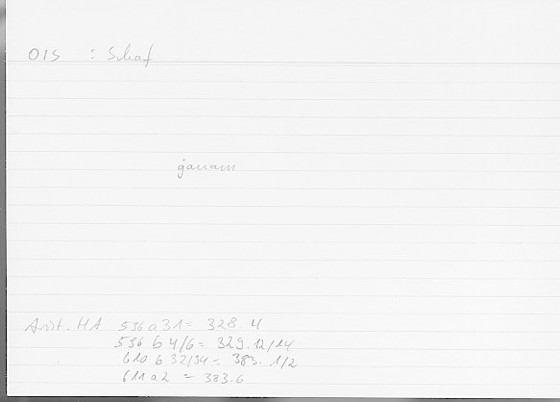 OIS : Schaf
ġanam
Arist. HA 536 a 31 = 328.4
536 b 4/6 = 329.12/14
610 b 32/34 = 383.1/2
611 a 2 = 383.6